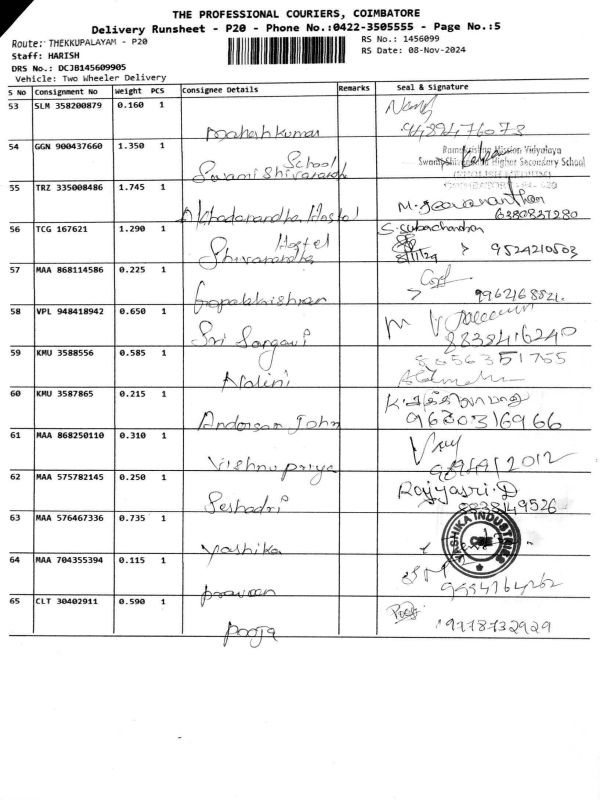 THE PROFESSIONAL COURIERS, COIMBATORE
Delivery Runsheet - P20 - Phone No.:0422-3505555 - Page No.:5
Route: THEKKUPALAYAM - P20
RS No.: 1456099
Staff: HARISH
RS Date: 08-Nov-2024
DRS No.: DCJB145609905
Vehicle: Two Wheeler Delivery
S No Consignment No Weight PCS Consignee Details Remarks Seal & Signature
53 SLM 358200879 0.160 1
Maheshkumar
54 GGN 900437660 1.350 1
Ramakrishna Mission Vidyalaya
School
Higher Secondary School
55 TRZ 335008486 1.745 1
Hostel
6380837280
56 TCG 167621 1.290 1
S. Subachandran
Hostel
8/11/24 9524210503
57 MAA 868114586 0.225 1
Gopalakrishnan
9962168821.
58 VPL 948418942 0.650 1
Sri Sargavi
8838416240
59 KMU 3588556 0.585 1
8856351755
Nalini
60 KMU 3587865 0.215 1
Anderson John
9630316966
61 MAA 868250110 0.310 1
Vishnu priya
62 MAA 575782145 0.250 1
Rajyasri. D
Seshadri
8838149526
63 MAA 576467336 0.735 1
YASHIKA INDUSTRIES
yashika
64 MAA 704355394 0.115 1
praveen
9994764262
65 CLT 30402911 0.590 1
Pooja
9778732929